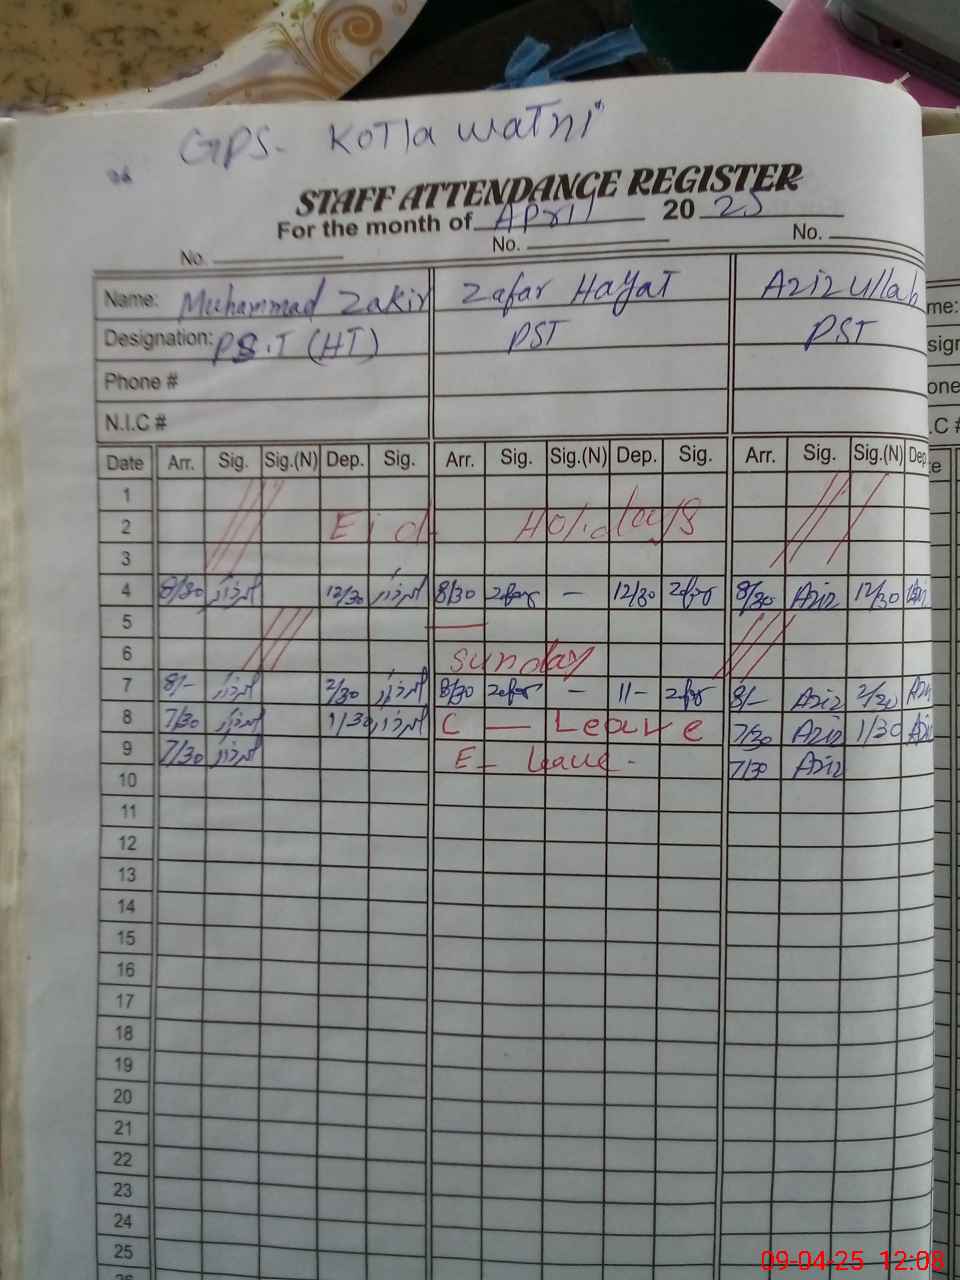 GPS- KOTla watni
STAFF ATTENDANCE REGISTER
For the month of April 2025
No. No. No.
Name: Muhammad Zakir Zafar Hayat Aziz Ullah me:
Designation: PS.T (HT) PST PST sigr
Phone # one
N.I.C # .C #
Date Arr. Sig. Sig.(N) Dep. Sig. Arr. Sig. Sig.(N) Dep. Sig. Arr. Sig. Sig.(N) Dep te
1
2 Eid Holidays
3
4 8/30 12/30 8/30 Zafar - 12/30 Zafar 8/30 Aziz 12/30
5
6 Sunday
7 8/- 2/30 8/30 Zafar - 11- Zafar 8/- Aziz 2/30 Aziz
8 7/30 1/30 C — Leave 7/30 Aziz 1/30 Aziz
9 7/30 E- Leave - 7/30 Aziz
10
11
12
13
14
15
16
17
18
19
20
21
22
23
24
25
26
09-04-25 12:08